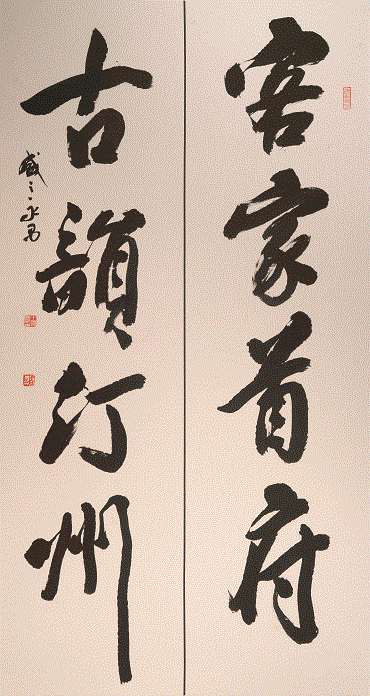 客家首府
古韻汀州